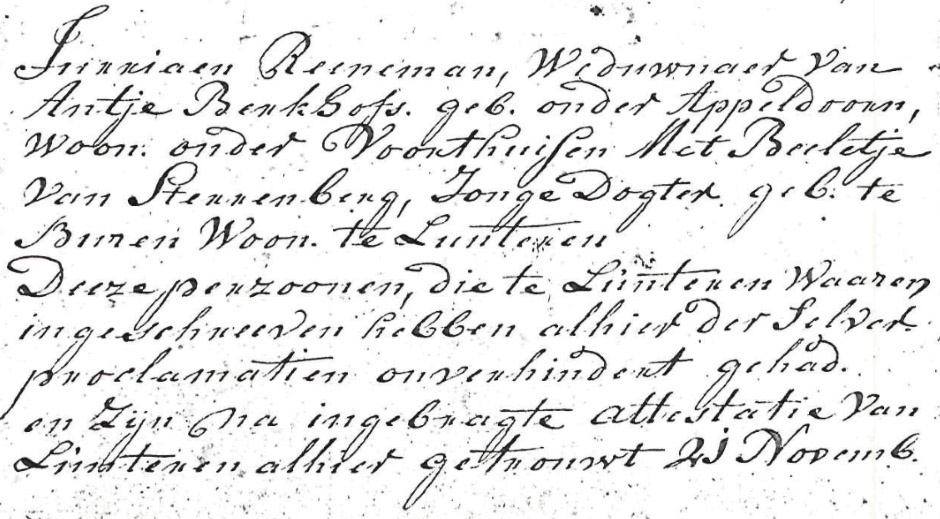 Jurriaen Reeneman, Weduwnaer Van
Antje BerkHofs. geb. onder Appeldoorn,
Woon. onder Voorthuisen Met Beeletje
Van Sterrenberg, Jonge Dogter geb. te
Buren Woon. te Lunteren
Deeze perzoonen, die te Lunteren Waaren
ingeschreeven hebben alhier der Selver
proclamatien onverhindert gehad.
en Zyn na ingebragte attestatie Van
Lunteren alhier getrouwt 21 Novemb.